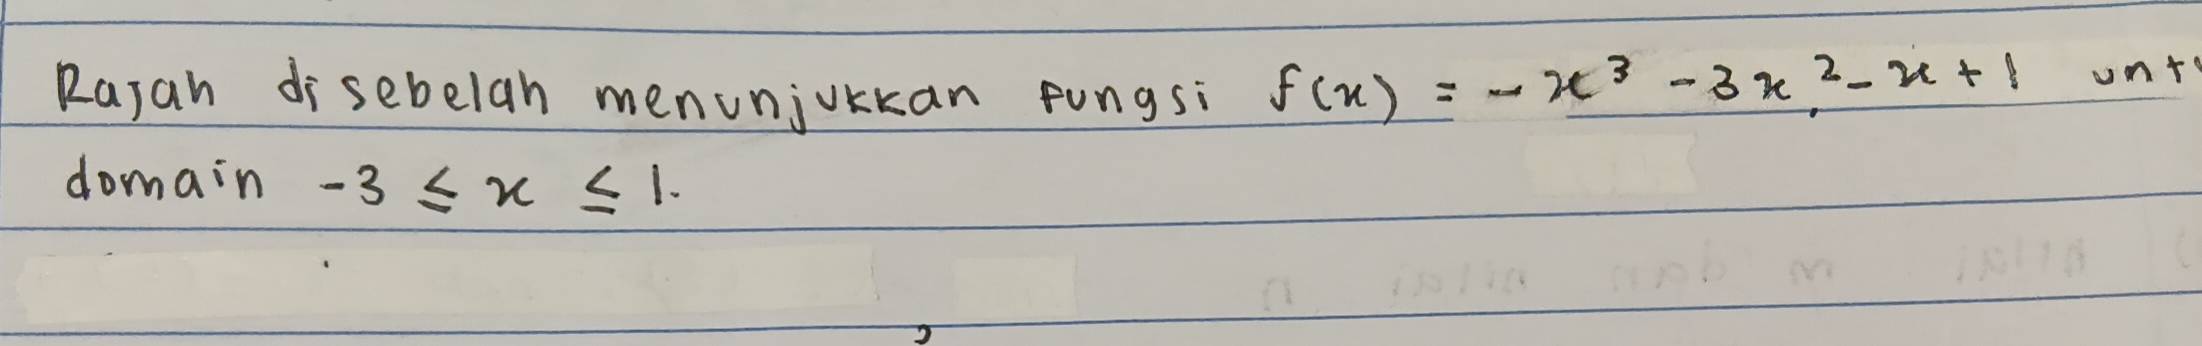 Rajah di sebelah menunjukkan fungsi f(x) = -x³ - 3x² - x + 1
domain -3 ≤ x ≤ 1.